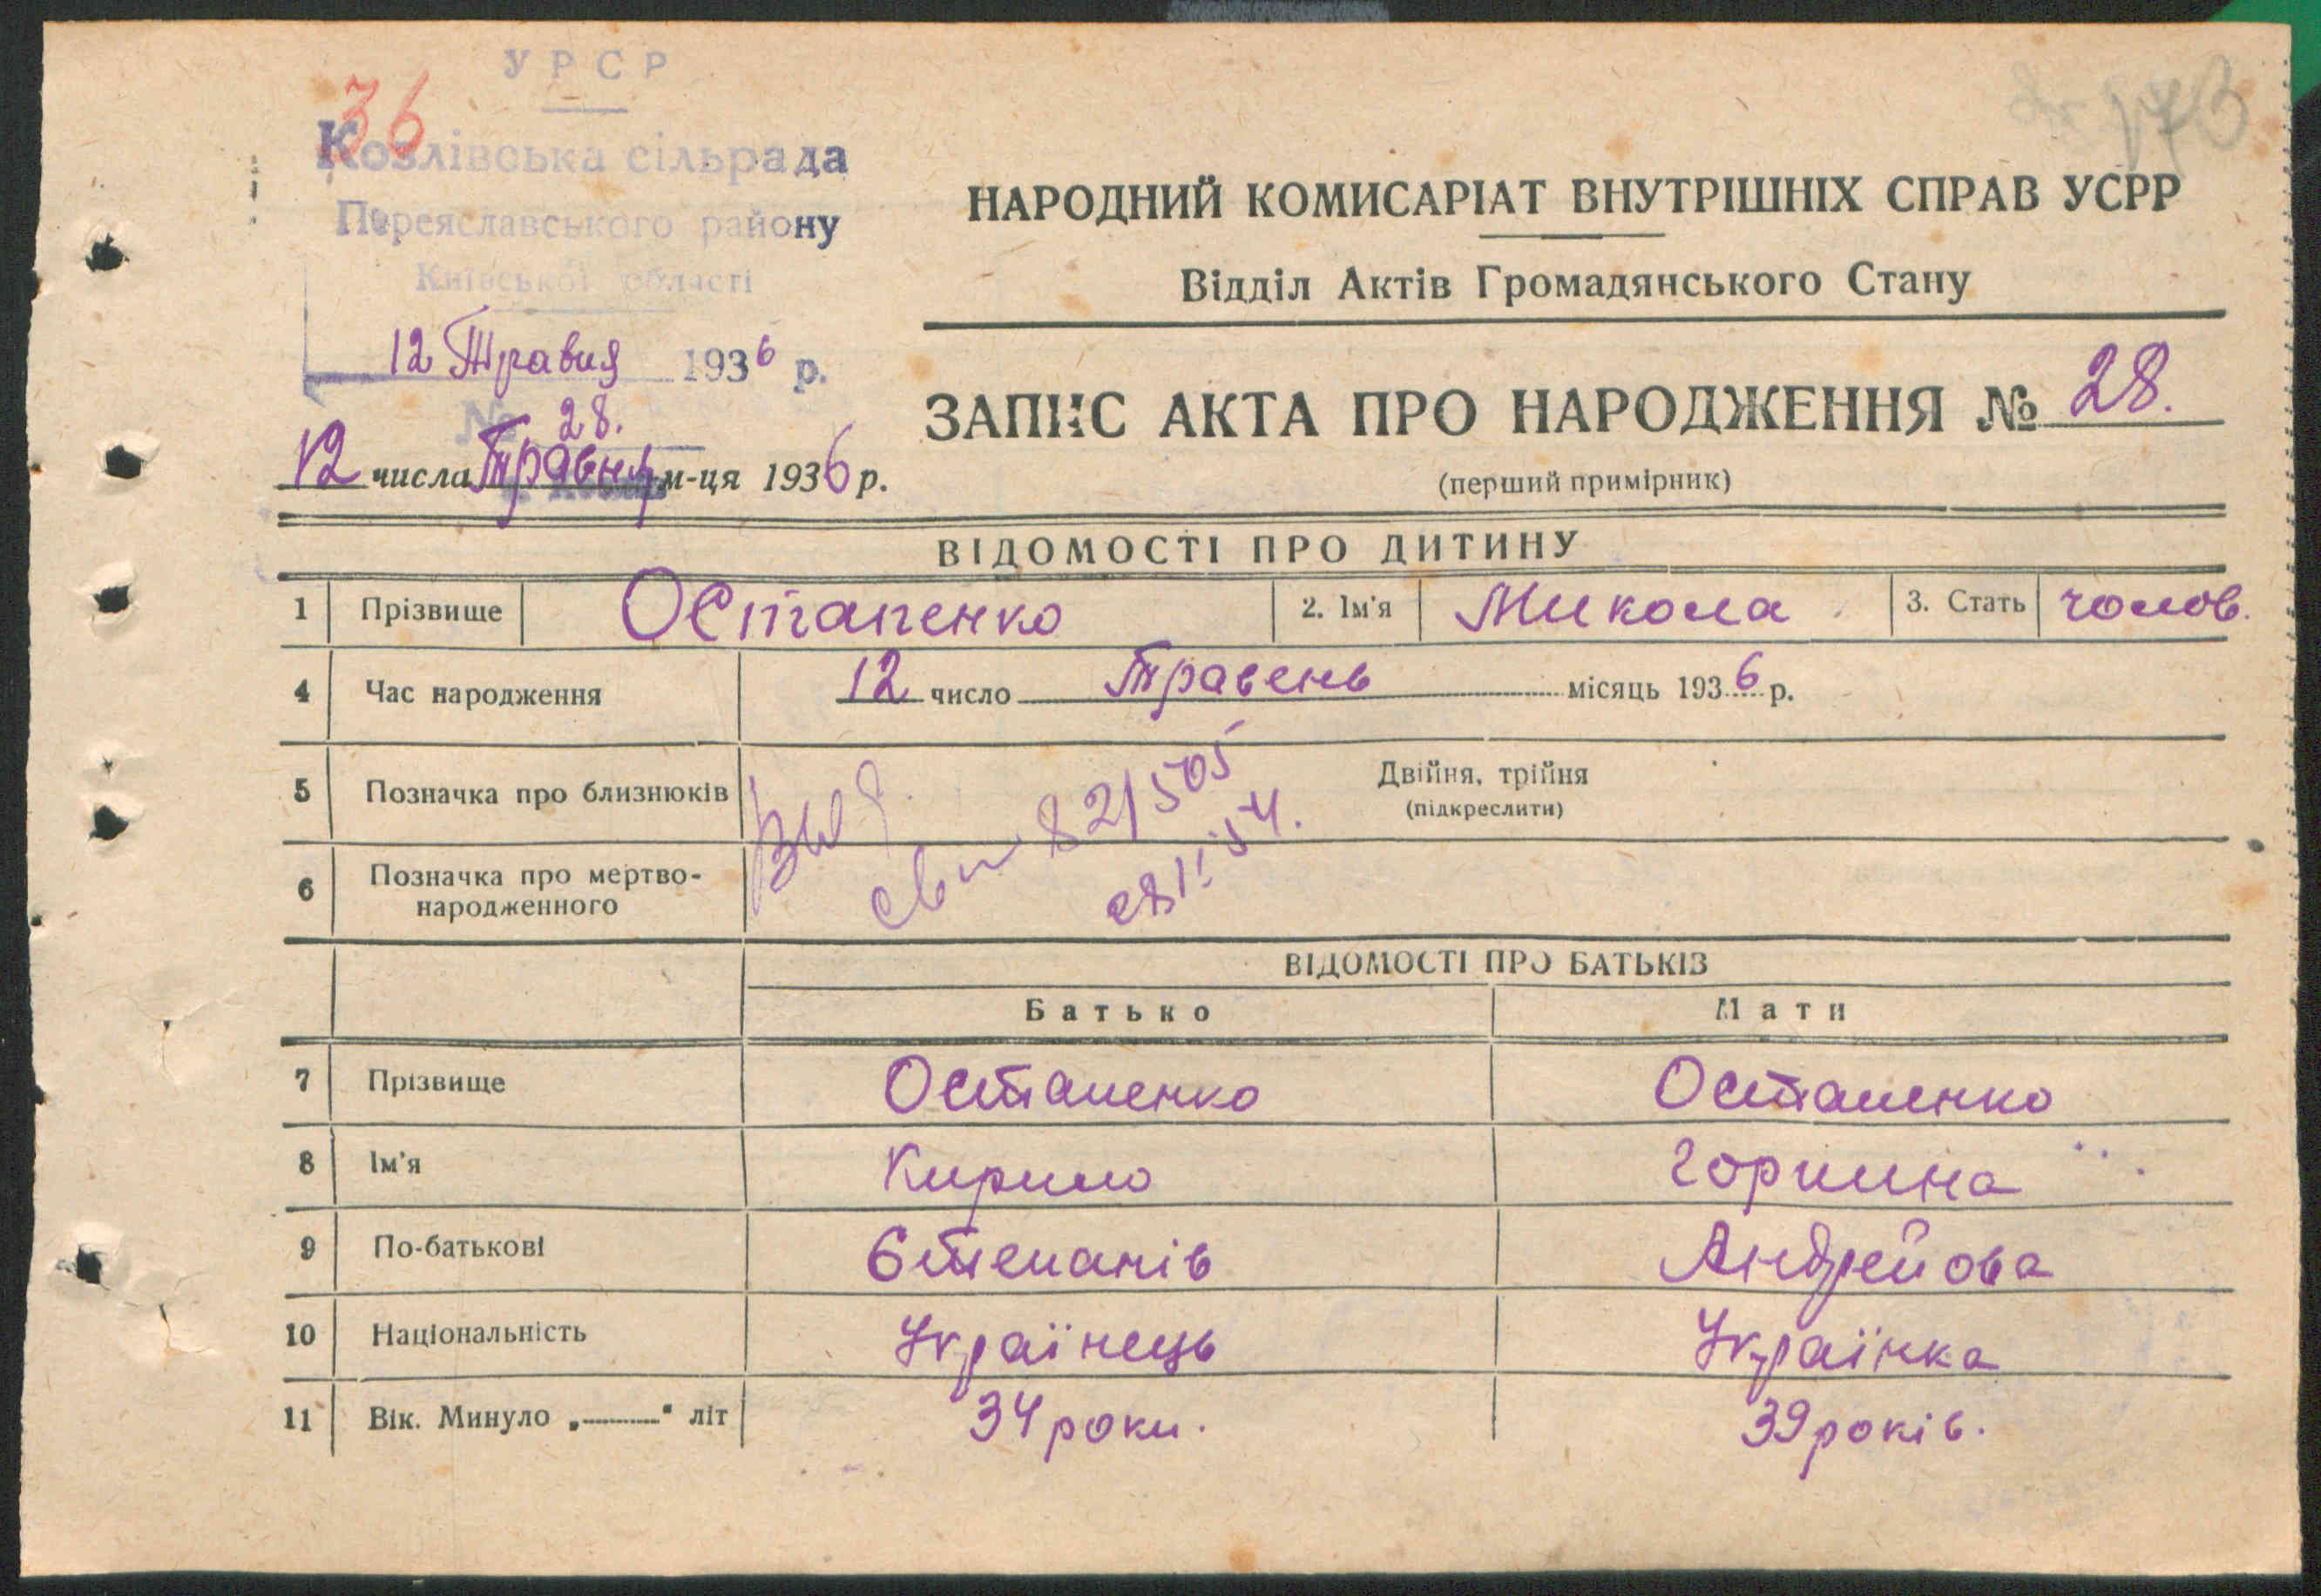 УРСР
36
Козлівська сільрада
Переяславського району
Київської області
12 Травня 1936 р.
№ 28.
12 числа Травня м-ця 1936 р.
173
НАРОДНИЙ КОМИСАРІАТ ВНУТРІШНІХ СПРАВ УСРР
Відділ Актів Громадянського Стану
ЗАПИС АКТА ПРО НАРОДЖЕННЯ № 28.
(перший примірник)
ВІДОМОСТІ ПРО ДИТИНУ
1 Прізвище Остапенко 2. Ім'я Микола 3. Стать чолов.
4 Час народження 12 число Травень місяць 1936 р.
5 Позначка про близнюків Двійня, трійня
(підкреслити)
6 Позначка про мертво-
народженного
82/505
ВІДОМОСТІ ПРО БАТЬКІВ
Батько Мати
7 Прізвище Остапенко Остапенко
8 Ім'я Кирило Горпина
9 По-батькові Степанів Андрейова
10 Національність Українець Українка
11 Вік. Минуло „ “ літ 34 роки. 39 років.